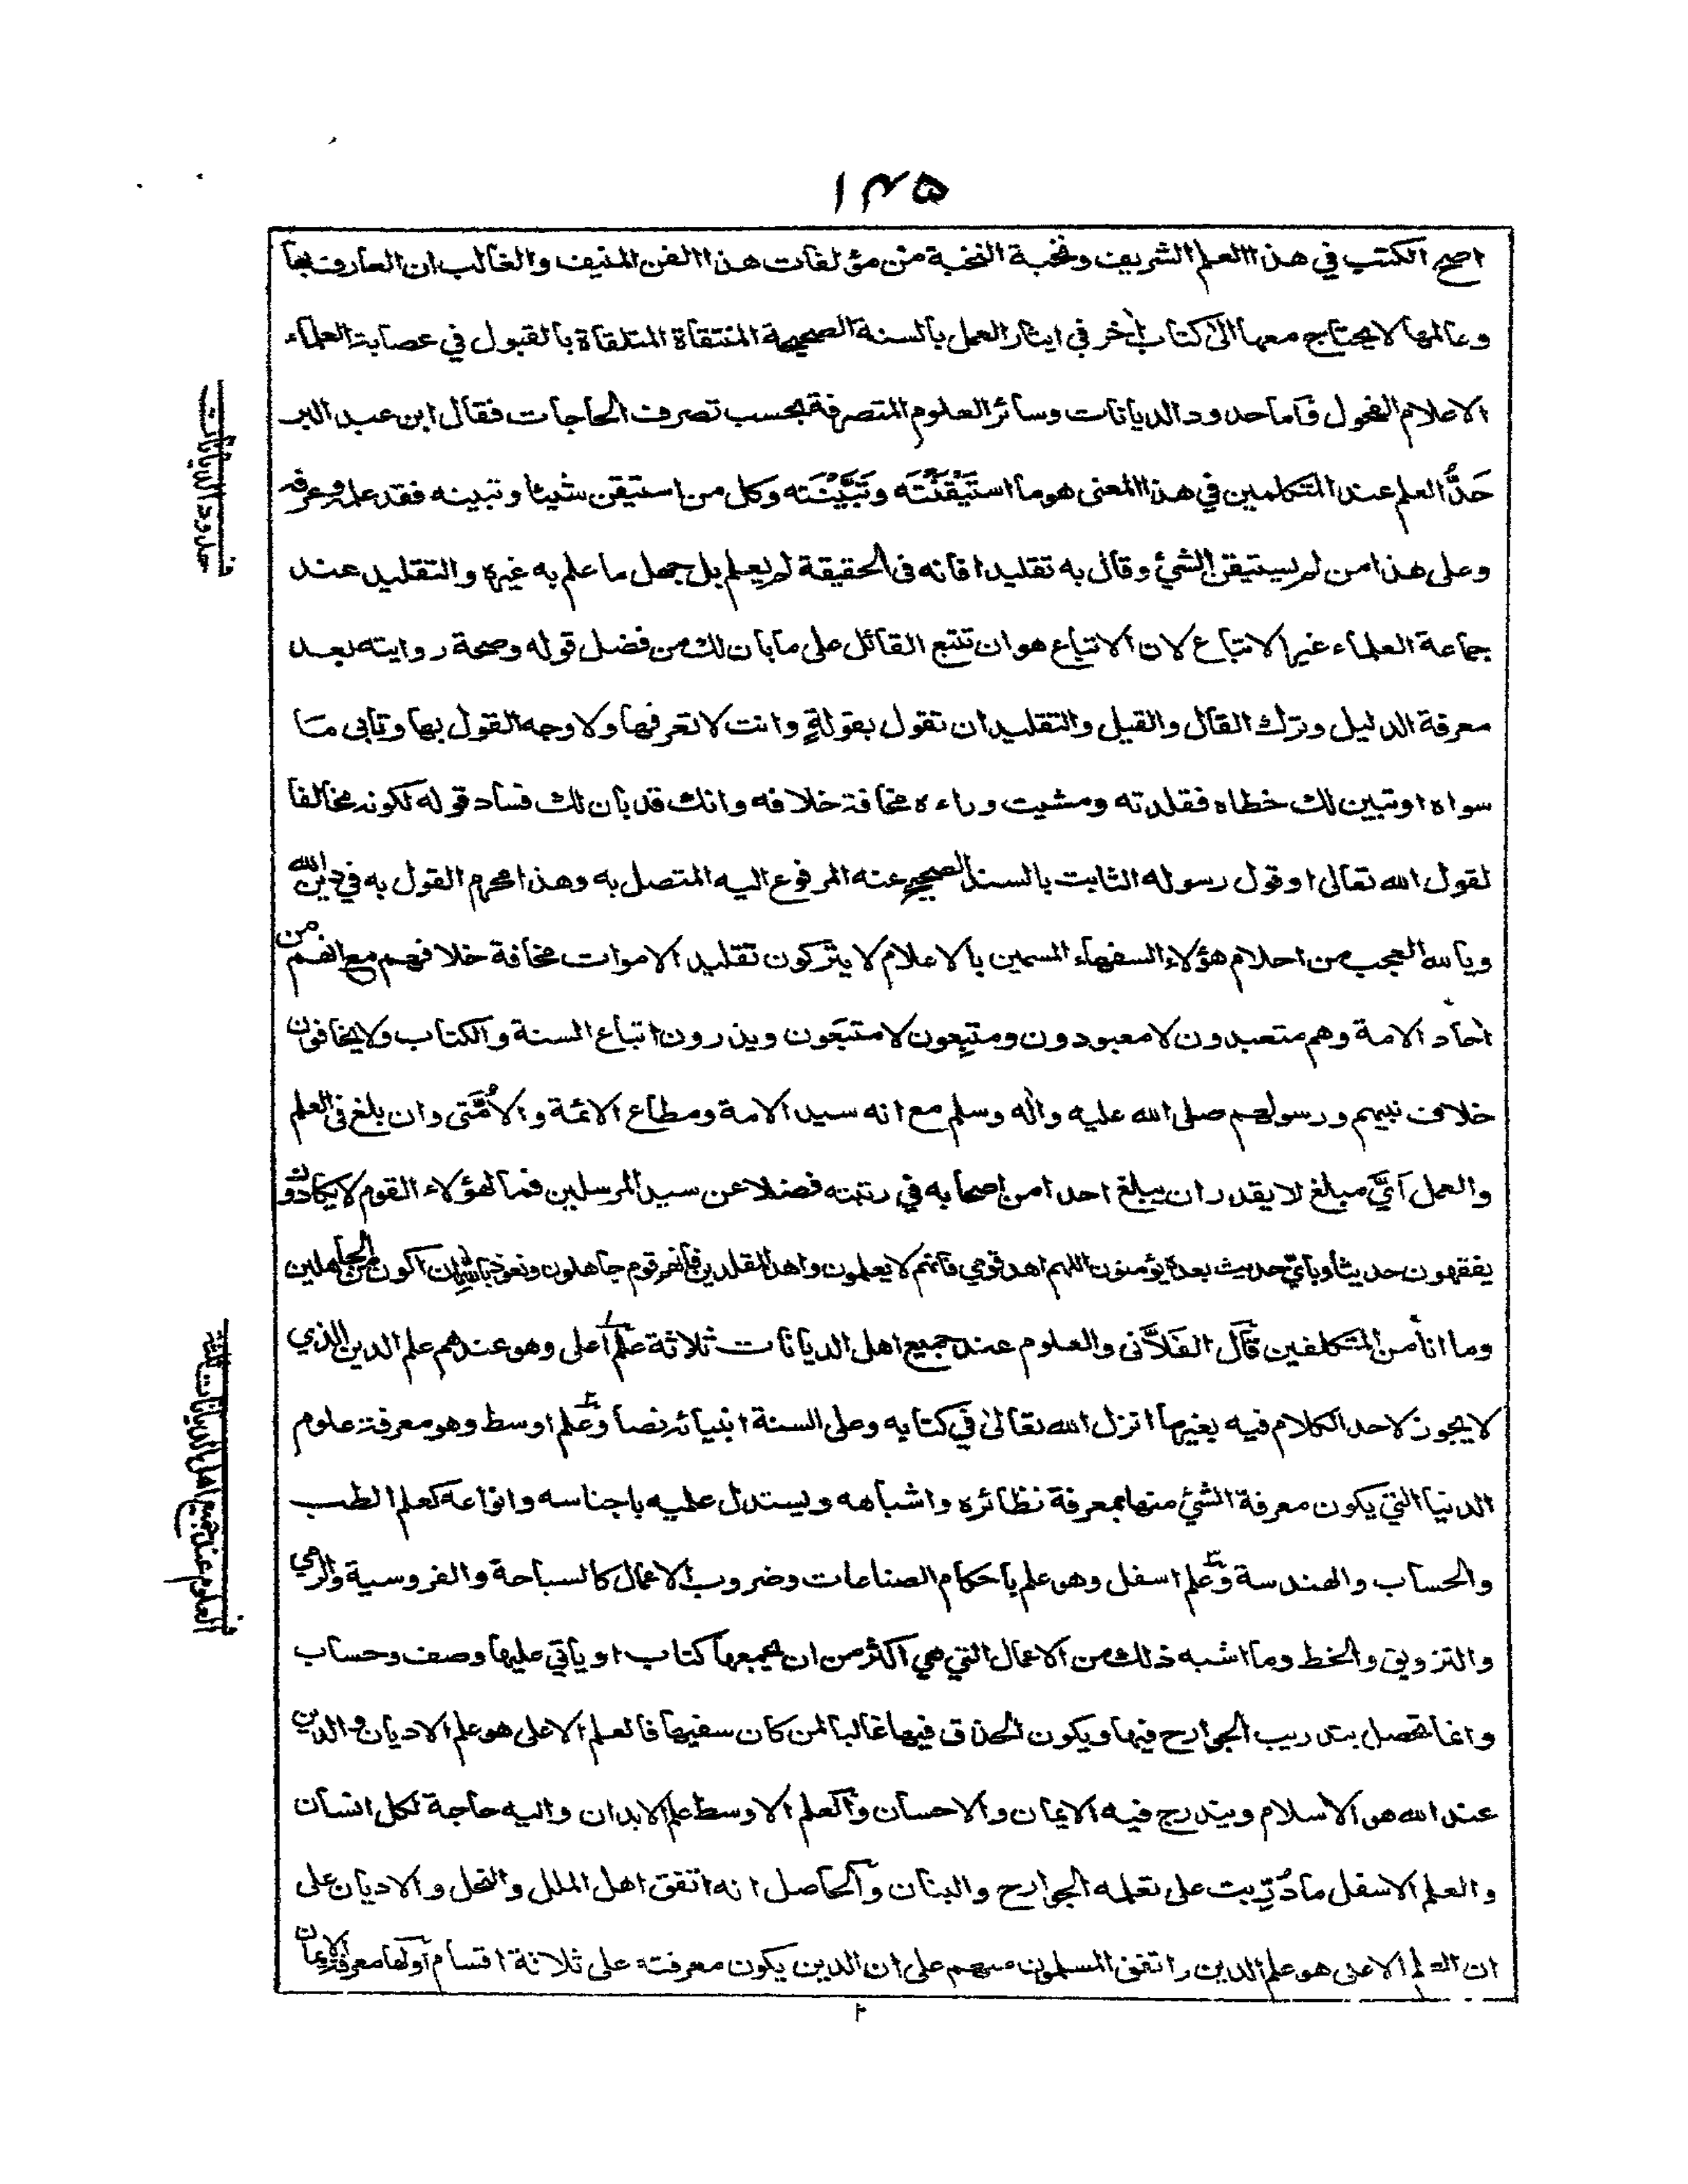 ١٣٥
اصح الكتب في هذا العلم الشريف ونخبة النخبة من مؤلفات هذا الفن المنيف والغالب ان العارف بها
وعالمها لا يحتاج معها الى كتاب اخر في ايثار العمل بالسنة الصحيحة المنتقاة المتلقاة بالقبول في عصابة العلماء
الاعلام الفحول فاما حدود الديانات وسائر العلوم المتصرفة بحسب تصرف الحاجات فقال ابن عبد البر
حَدُّ العلم عند المتكلمين في هذا المعنى هو ما استَيْقَنْتَه وتَبَيَّنْتَه وكل من استيقن شيئا وتبينه فقد علمه وعرفه
وعلى هذا من لم يستيقن الشئ وقال به تقليدا فانه في الحقيقة لم يعلم بل جهل ما علم به غيره والتقليد عند
جماعة العلماء غير الاتباع لان الاتباع هو ان تتبع القائل على ما بان لك من فضل قوله وصحة روايته بعد
معرفة الدليل وترك القال والقيل والتقليد ان تقول بقولةٍ وانت لا تعرفها ولا وجه القول بها وتابى ما
سواه او تبين لك خطاه فقلدته ومشيت وراءه مخافة خلافه وانك قد بان لك فساد قوله لكونه مخالفا
لقول الله تعالى او قول رسوله الثابت بالسند الصحيح عنه المرفوع اليه المتصل به وهذا محرم القول به في دين الله
ويا لله العجب من احلام هؤلاء السفهاء المسمين بالاعلام لا يتركون تقليد الاموات مخافة خلافهم مع انهم من
احاد الامة وهم متعبدون لا معبودون ومتبِعون لا متبَعون ويذرون اتباع السنة والكتاب ولا يخافون
خلاف نبيهم ورسولهم صلى الله عليه واله وسلم مع انه سيد الامة ومطاع الائمة والاُمَّتى وان بلغ في العلم
والعمل اَيَّ مبلغ لا يقدر ان يبلغ احدا من اصحابه في رتبته فضلا عن سيد المرسلين فما لهؤلاء القوم لا يكادون
يفقهون حديثا وباي حديث بعده يؤمنون اللهم اهد قومي فانهم لا يعلمون واهد المقلدين فانهم قوم جاهلون ونعوذ بالله ان اكون من الجاهلين
وما انا من المتكلفين قال الفَلاَّنى والعلوم عند جميع اهل الديانات ثلاثة علم اعلى وهو عندهم علم الدين الذي
لا يجوز لاحد الكلام فيه بغير ما انزل الله تعالىٰ في كتابه وعلى السنة انبيائه نصا وعلم اوسط وهو معرفة علوم
الدنيا التي يكون معرفة الشئ منها بمعرفة نظائره واشباهه ويستدل عليه باجناسه وانواعه كعلم الطب
والحساب والهندسة وعلم اسفل وهو علم باحكام الصناعات وضروب الاعمال كالسباحة والفروسية والرمي
والتزويق والخط وما اشبه ذلك من الاعمال التي هي اكثر من ان يجمعها كتاب او ياتي عليها وصف وحساب
وانما تحصل بتدريب الجوارح فيها ويكون الحذاق فيها غالبا لمن كان سفيها فالعلم الاعلى هو علم الاديان والدين
عند الله هو الاسلام ويندرج فيه الايمان والاحسان والعلم الاوسط علم الابدان واليه حاجة لكل انسان
والعلم الاسفل ما دُرِّبت على تعلمه الجوارح والبنان والحاصل انه اتفق اهل الملل والنحل والاديان على
ان العلم الاعلى هو علم الدين واتفق المسلمون منهم على ان الدين يكون معرفته على ثلاثة اقسام اولها معرفة الايمان
حدود الديانات
العلوم عند جميع اهل الديانات ثلاثة